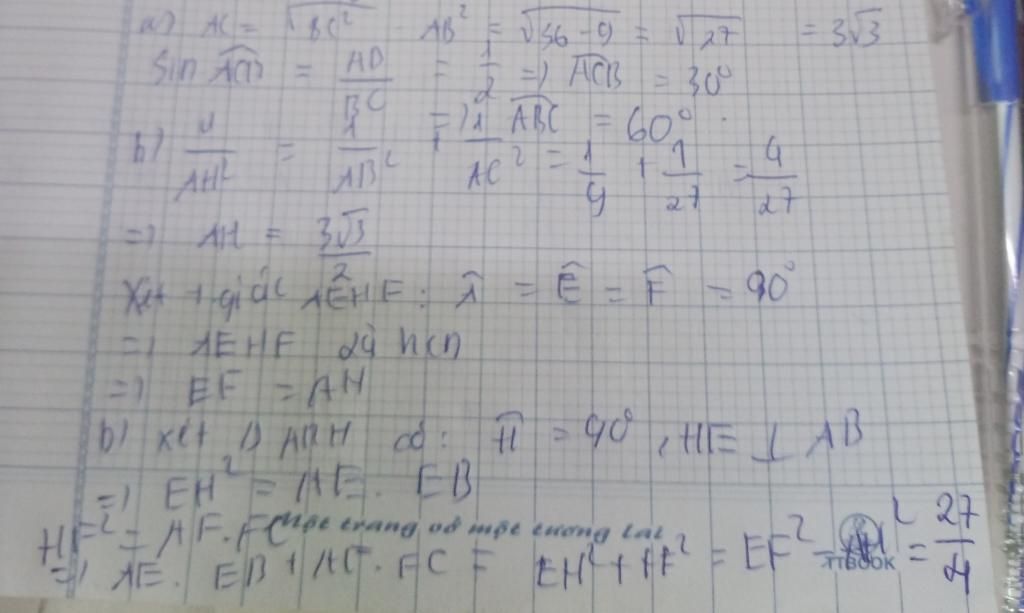 a) AC = √BC² - AB² = √36-9 = √27 = 3√3
Sin ACB = AB/BC = 1/2 => ACB = 30°
=> ABC = 60°.
b) 1/AH² = 1/AB² + 1/AC² = 1/9 + 1/27 = 4/27
=> AH = 3√3/2
Xét tgiác AEHF: Â = Ê = F̂ = 90°
=> AEHF là hcn
=> EF = AH
b) xét Δ ABH có: Ĥ = 90°, HE ⊥ AB
=> EH² = AE. EB
HF² = AF.FC
=> AE. EB + AF. FC = EH² + HF² = EF² = AH² = 27/4